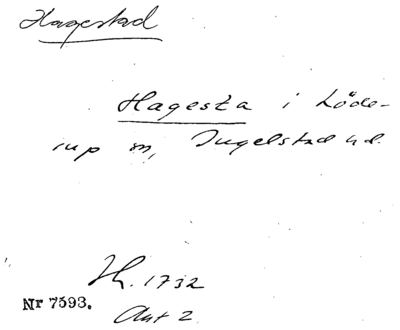 Hagestad
Hagesta i Löde-
rup sn, Ingelstad hd.
Jh. 1732
Nr 7593.
Ant 2